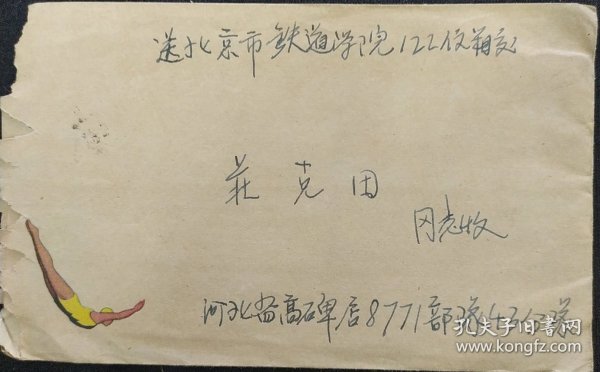 送北京市铁道学院122信箱交
莊克田
同志收
河北省高碑店8771部队
孔夫子旧书网
www.kongfz.com